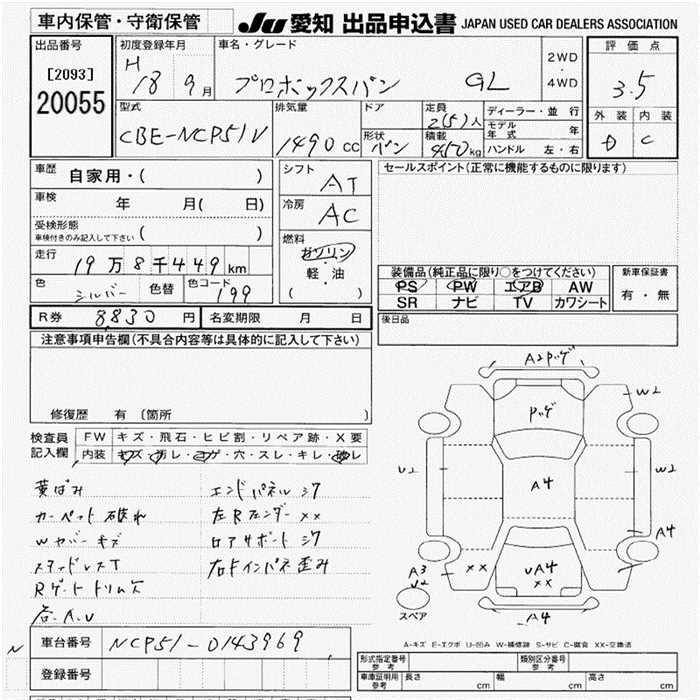 車内保管・守衛保管
JU 愛知 出品申込書 JAPAN USED CAR DEALERS ASSOCIATION
出品番号
[2093]
20055
初度登録年月
H 18 9月
車名・グレード
プロボックスバン GL
2WD
・
4WD
評価点
3.5
外装 内装
D C
型式
CBE-NCP51V
排気量
1490 CC
ドア
形状
バン
定員
2(5)人
積載
450kg
ディーラー・並行
モデル年式 年
ハンドル 左・右
車歴
自家用・( )
車検
年 月( 日)
受検形態
車検付きのみ記入して下さい ( )
走行
19万8千449km
色
シルバー
色替
色コード
199
シフト
AT
冷房
AC
燃料
ガソリン
・
軽・油
( )
セールスポイント(正常に機能するものに限ります)
装備品(純正品に限り○をつけてください)
PS PW エアB AW
SR ナビ TV カワシート
新車保証書
有・無
後日品
R券 8,830 円
名変期限 月 日
注意事項申告欄(不具合内容等は具体的に記入して下さい)
修復歴 有 〔箇所 〕
検査員記入欄
FW キズ・飛石・ヒビ割・リペア跡・X要
内装 キズ・汚レ・コゲ・穴・スレ・キレ・破レ
黄ばみ
カーペット破れ
Wカバーキズ
スタッドレスT
Rゲートトリムズ
各A.U
エンドパネルシワ
左Rフェンダー××
ロアサポートシワ
右ドインパネ歪み
A2Pッゲ
W2
Pッゲ
U2
A4
W2
A4
A3
U2
××
UA4
××
A4
スペア
A-キズ E-エクボ U-凹み W-補修跡 S-サビ C-腐食 XX-交換済
N
車台番号 NCP51-0143969
登録番号
形式指定番号
参考
類別区分番号
参考
車庫証明用
参考
長さ cm
幅 cm
高さ cm